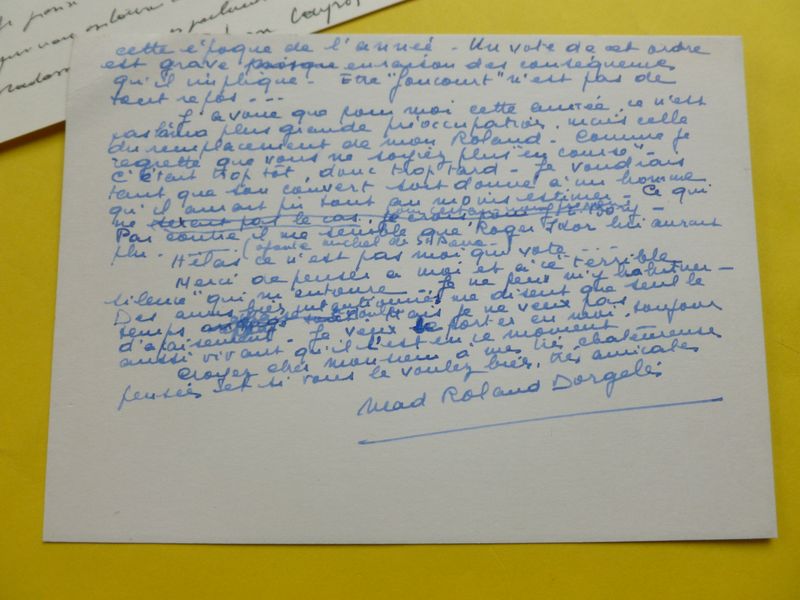 cette époque de l'année - Un vote de cet ordre
est grave en raison des conséquences
qu'il implique - Etre "Goncourt" n'est pas de
tout repos ...
J'avoue que pour moi cette année, ce n'est
pas la plus grande préoccupation, mais celle
du remplacement de mon Roland - Comme je
regrette que vous ne soyiez plus "en course" -
C'était trop tôt, donc trop tard - Je voudrais
tant que son couvert soit donné à un homme
qu'il aurait pu tout au moins estimer - Ce qui
ne serait pas le cas,
Par contre, il me semble que Roger Ikor lui aurait
plu. -
Hélas ce n'est pas moi qui vote - ...
Merci de penser à moi et à "ce terrible
silence" qui m'entoure - Je ne peux m'y habituer -
Des amis bien intentionnés me disent que seul le
temps Mais je ne veux pas
d'apaisement - Je veux le porter en moi, toujours
aussi vivant qu'il l'est en ce moment
Croyez cher monsieur à mes très chaleureuses
pensées et si vous le voulez bien, très amicales
Mad Roland Dorgelès